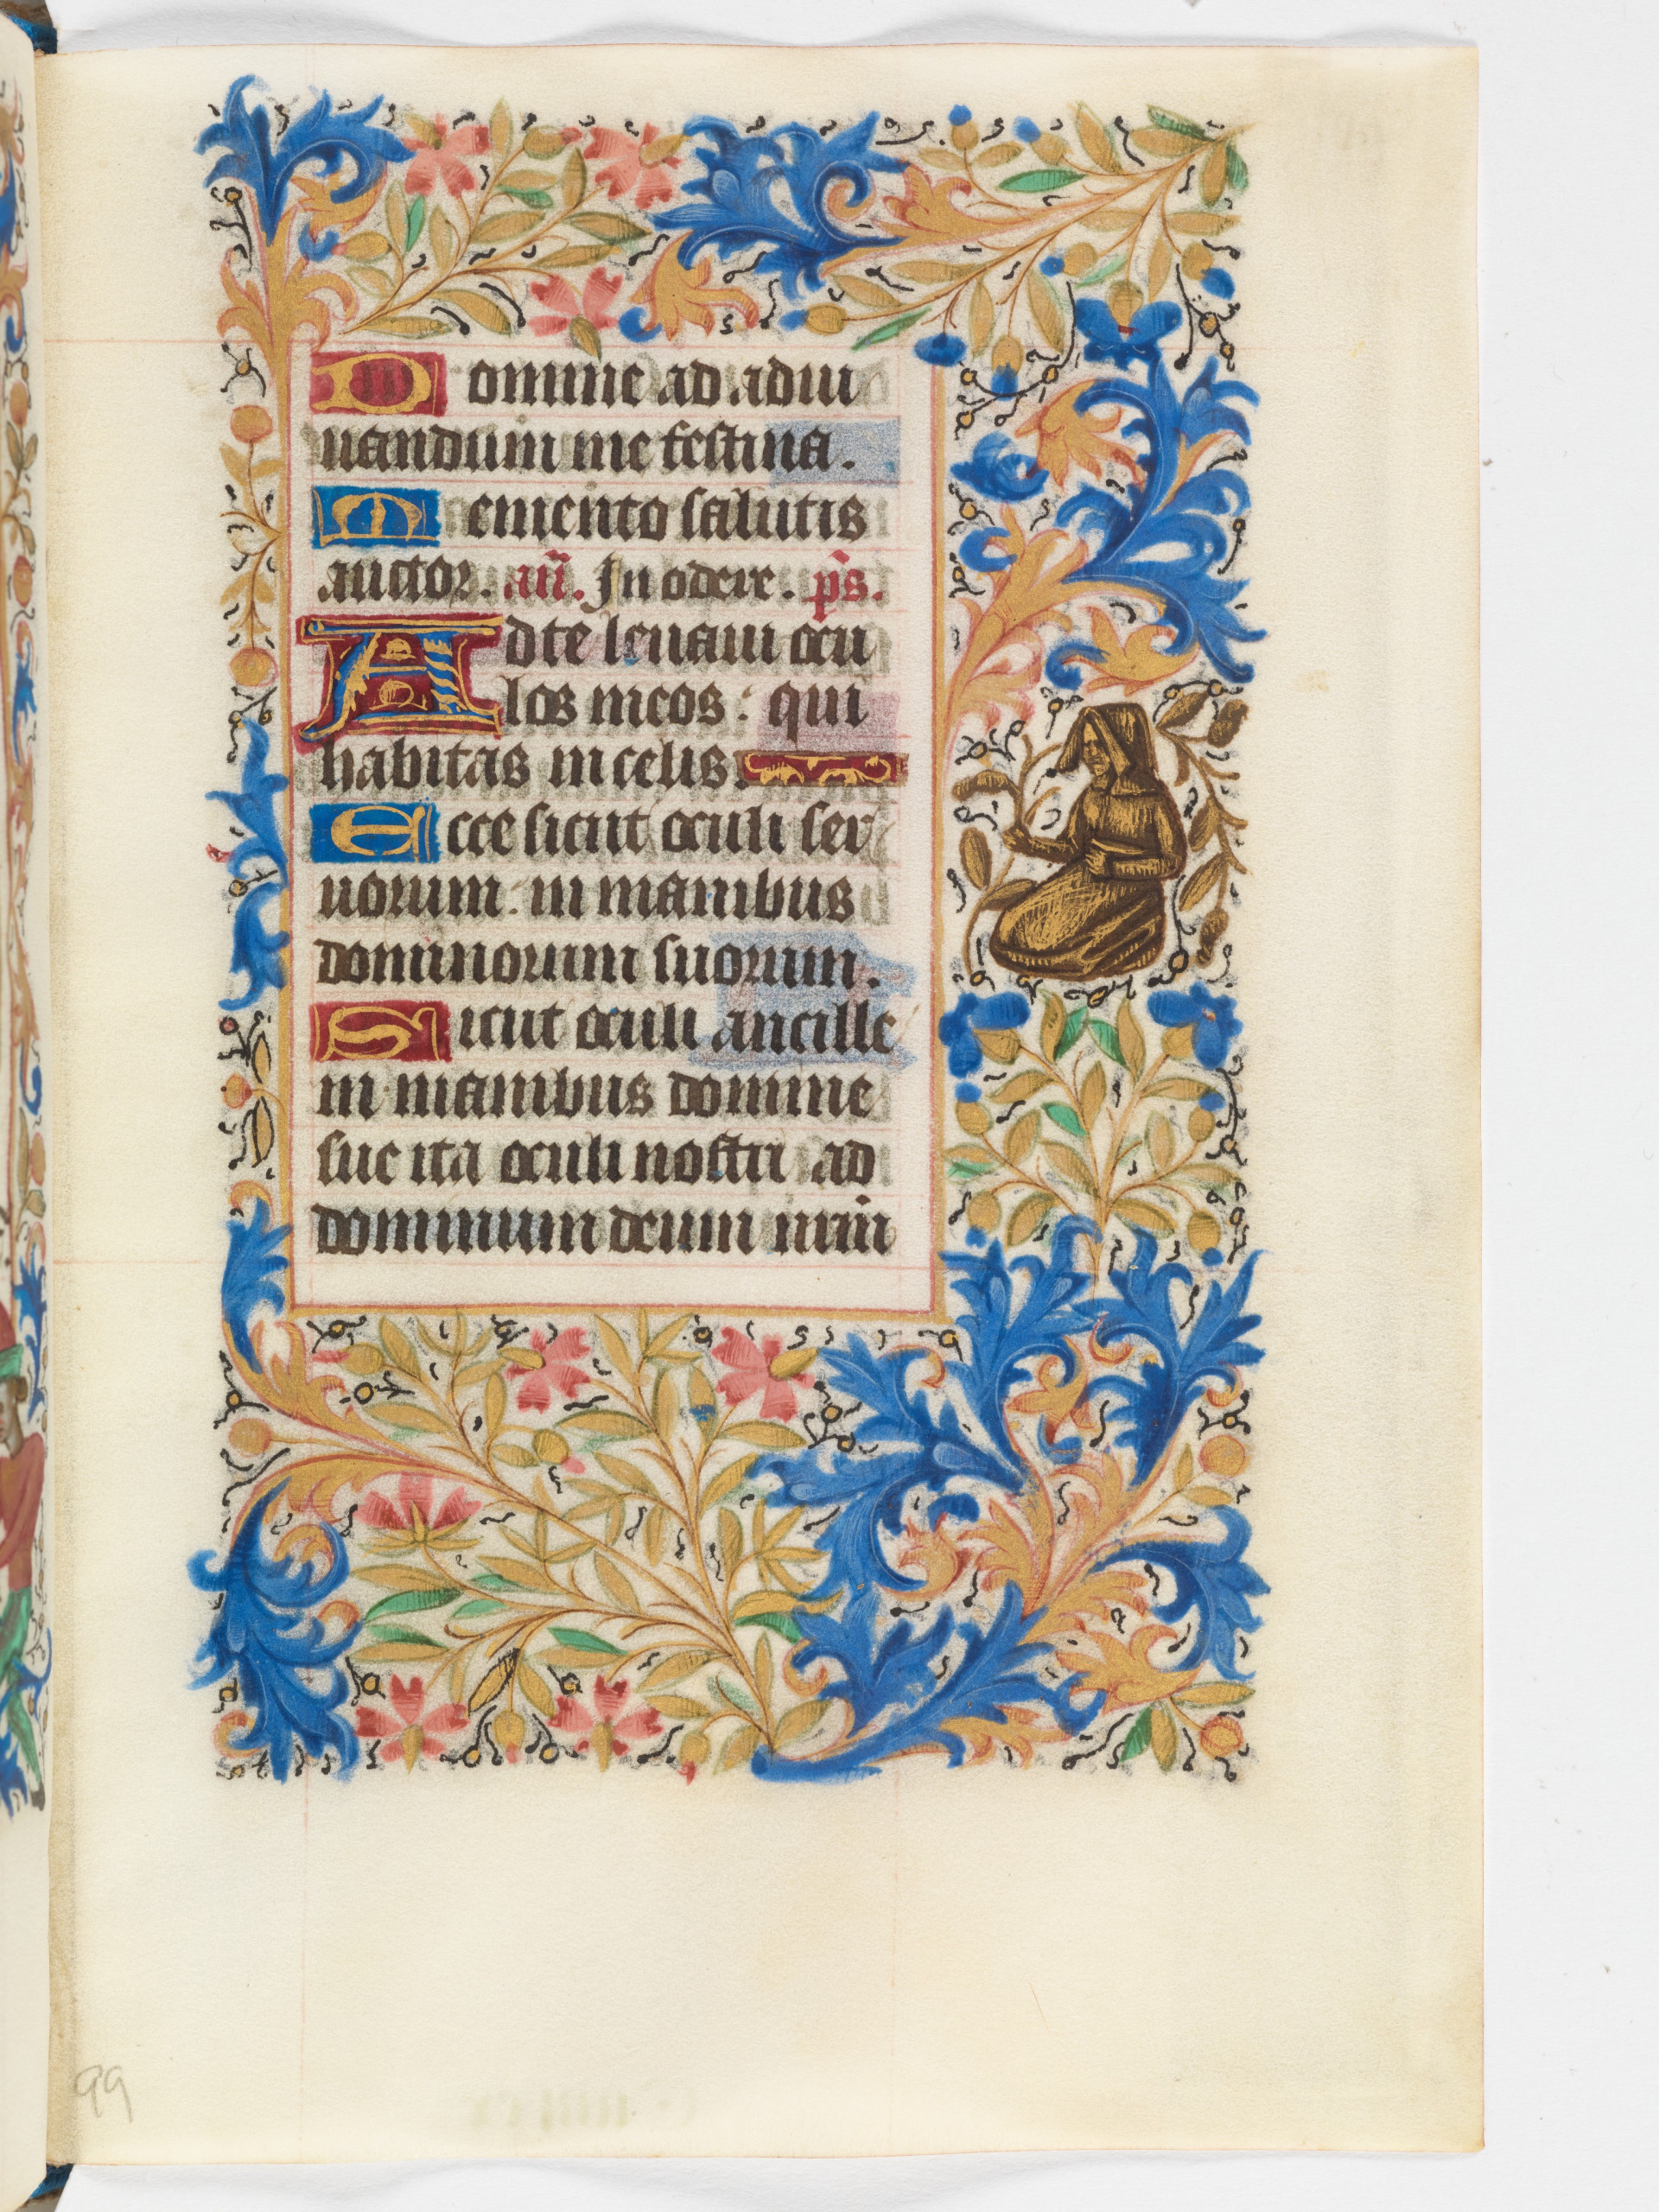 Domine ad adiu
uandum me festina.
Memento salutis
auctor. an̄. In odere. p̄s.
Ad te leuaui ocu
los meos: qui
habitas in celis.
Ecce sicut oculi ser
uorum: in manibus
dominorum suorum.
Sicut oculi ancille
in manibus domine
sue ita oculi nostri ad
dominum deum nrm̄
99